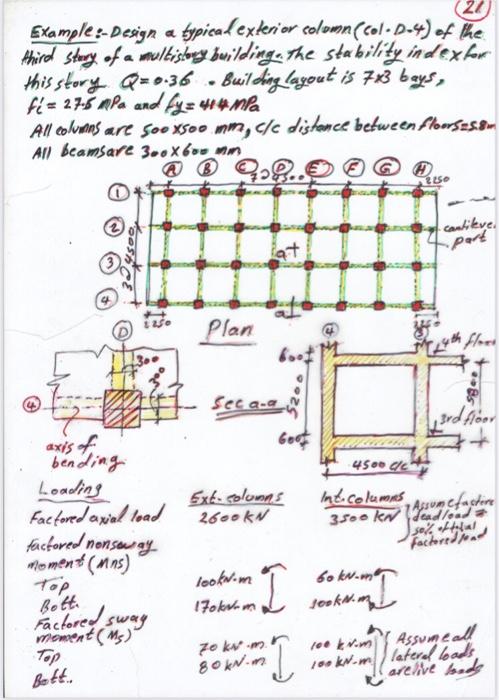 21
Example:- Design a typical exterior column (col. D-4) of the
third story of a multistory building. The stability index for
this story Q=0.36 . Building layout is 7x3 bays,
fc' = 27.6 MPa and fy=414 MPa
All columns are 500x500 mm, c/c distance between floors=5.8m
All beams are 300x600 mm
A B C D E F G H
7@4500
2250
1
2
3
4
3@4500
cantilever
part
a
a
2250
2250
Plan
D
300
4
axis of
bending
Sec a-a
4
3
600
5200
600
4th floor
5800
3rd floor
4500 c/c
Loading
Ext. columns
Int. columns
Factored axial load
2600 kN
3500 kN
Assume factored
dead load =
50% of total
factored load
Factored nonsway
moment (Mns)
Top
100 kN-m
60 kN-m
Bott.
170 kN-m
100 kN-m
Factored sway
moment (Ms)
Top
70 kN-m
100 kN-m
Bott.
80 kN-m
100 kN-m
Assume all
lateral loads
are live loads